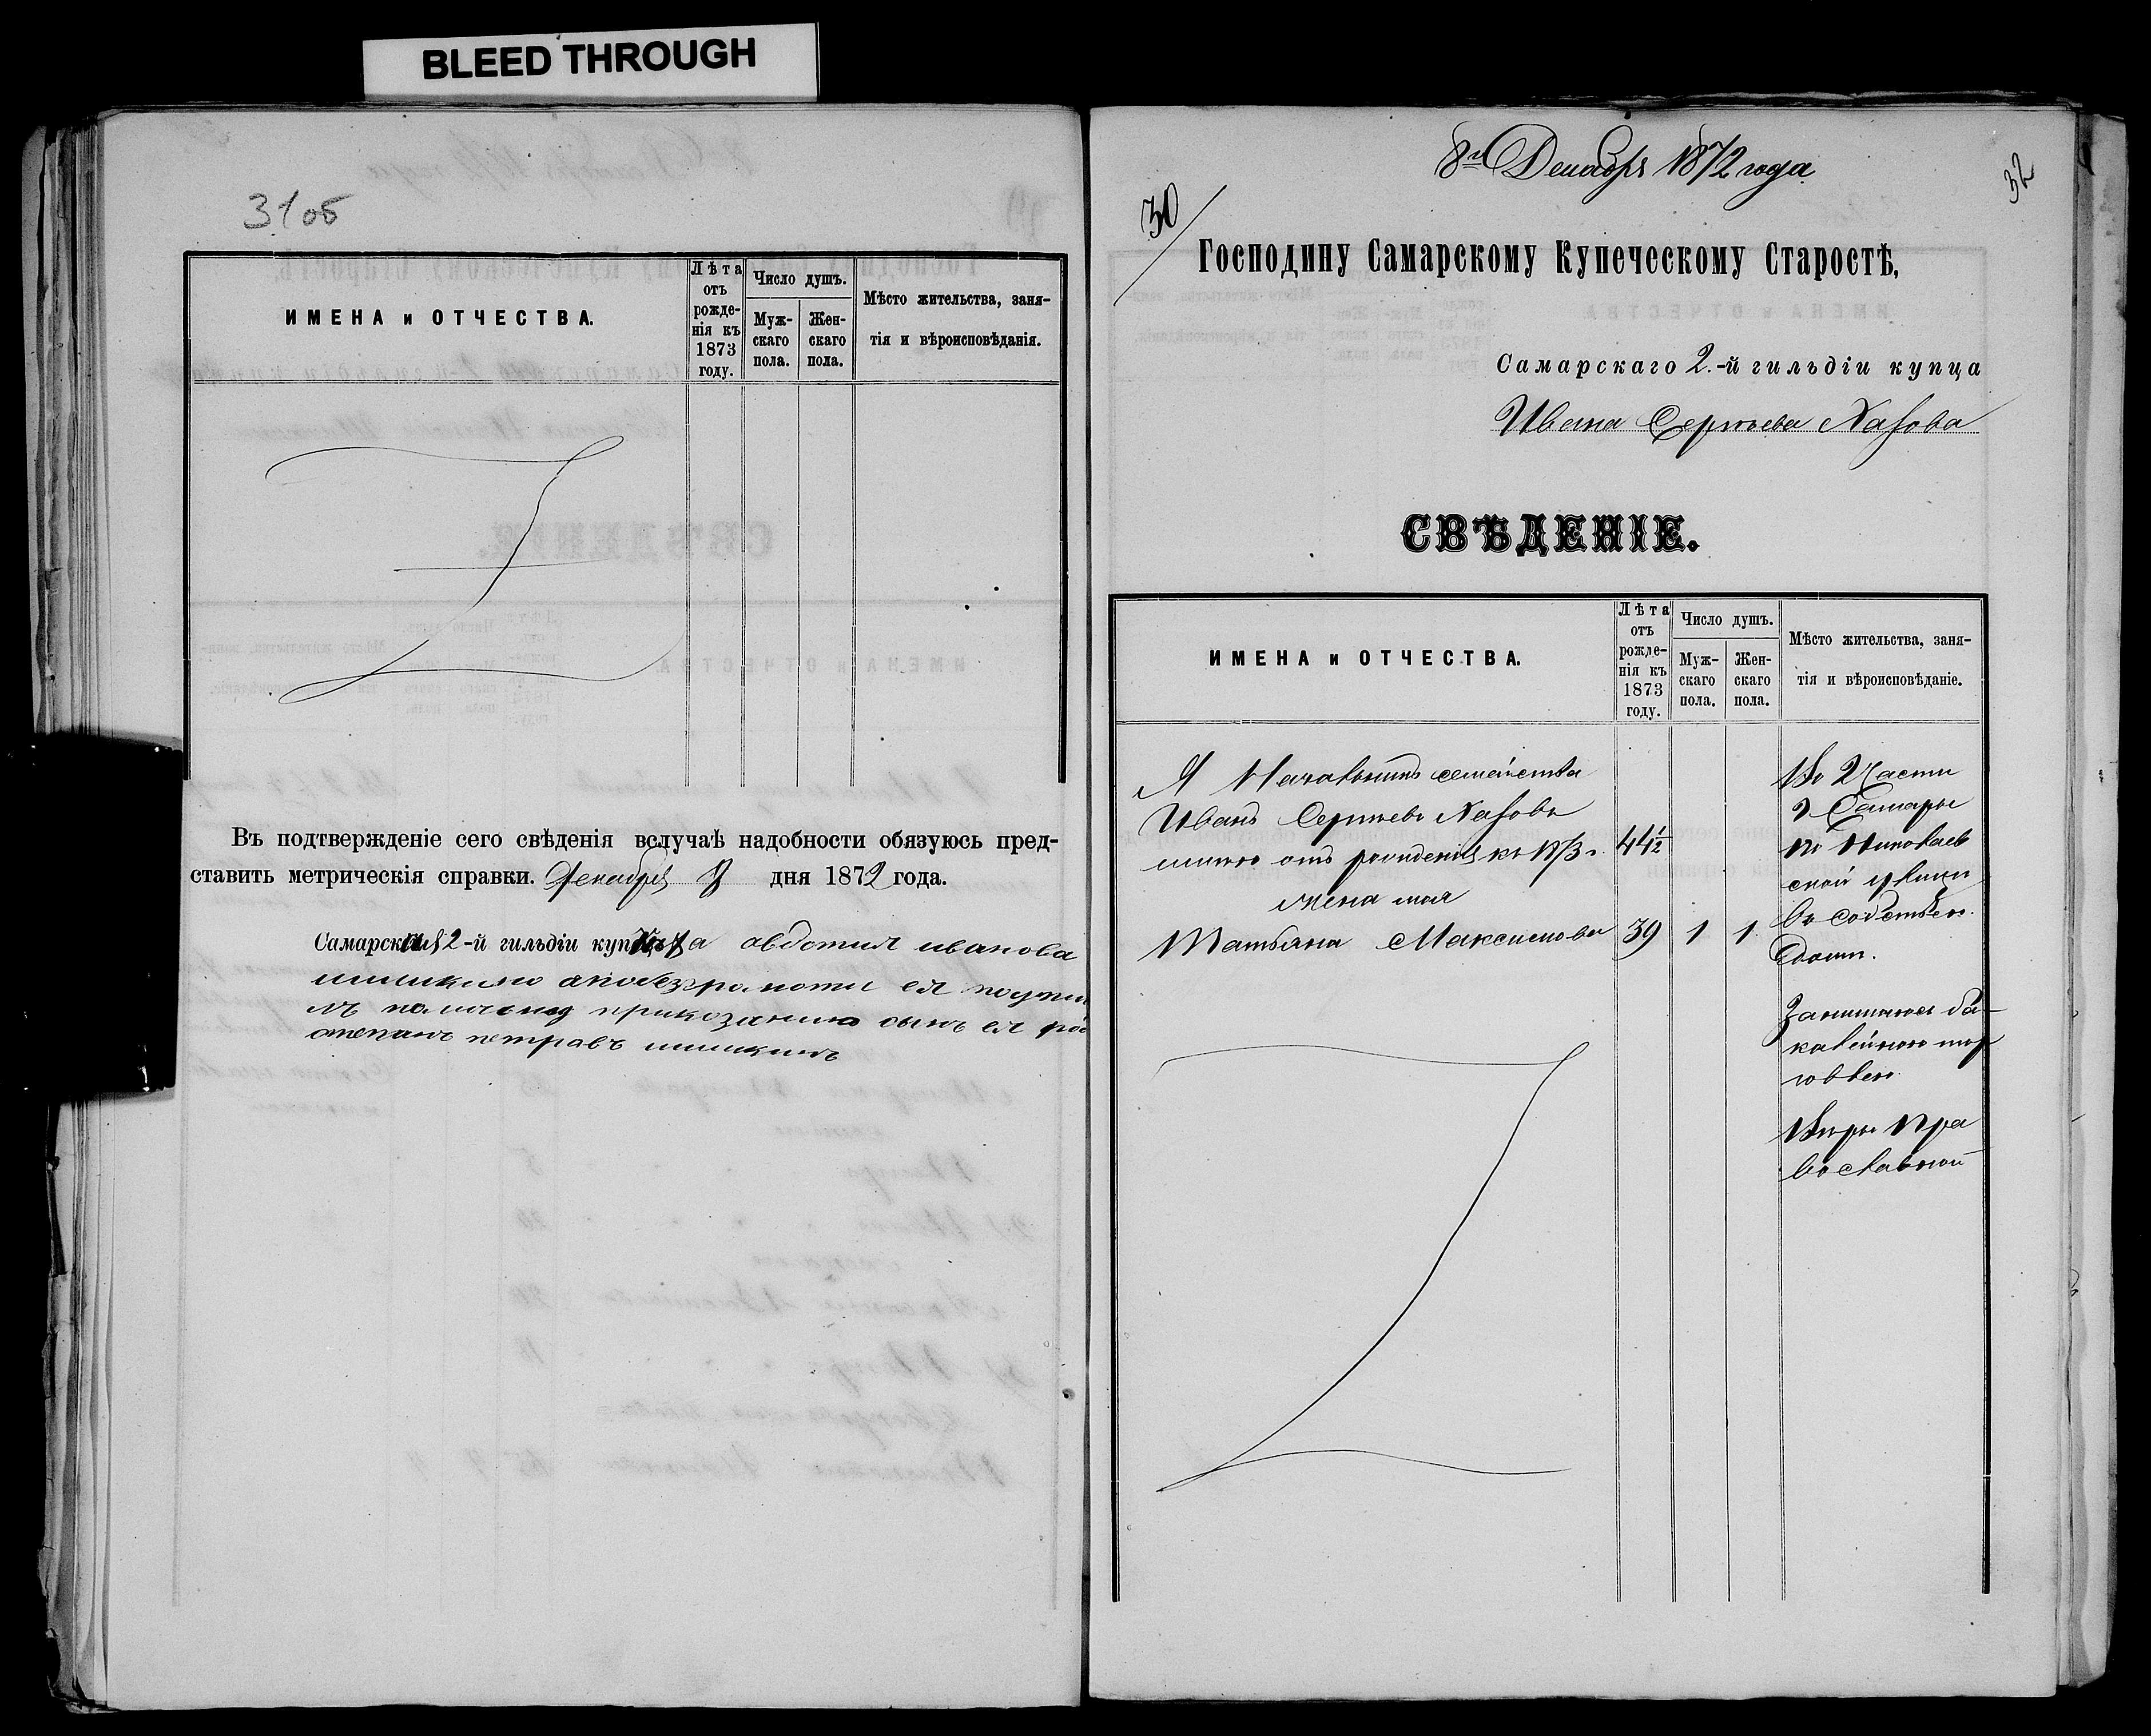 BLEED THROUGH
31об
ИМЕНА и ОТЧЕСТВА.
Лѣта отъ рожде-нія къ 1873 году.
Число душъ.
Муж-скаго пола.
Жен-скаго пола.
Мѣсто жительства, заня-
тія и вѣроисповѣданія.
Въ подтвержденіе сего свѣденія вслучаѣ надобности обязуюсь пред-
ставить метрическія справки. Декабря 8 дня 1872 года.
Самарская 2-й гильдіи купчиха авдотия иванова
шишкино апобезграмоти ея
личному приказанию сынъ ея
степанъ петравъ шишкинъ
8го Декабря 1872 года
30
32
Господину Самарскому Купеческому Старостѣ,
Самарскаго 2.-й гильдіи купца
Ивана Сергѣева Хазова
СВѢДЕНІЕ.
ИМЕНА и ОТЧЕСТВА.
Лѣта отъ рожде-нія къ 1873 году.
Число душъ.
Муж-скаго пола.
Жен-скаго пола.
Мѣсто жительства, заня-
тія и вѣроисповѣданіе.
Я Начальникъ семейства
Иванъ Сергѣевъ Хазовъ
имѣю отъ рожденія къ 1873 г. 44½
жена моя
Татьяна Максимова 39 1 1
Во 2 Части
г Самары
по Николаев
ской улицы
въ собствен.
доми.
Занимаюсь ба-
калейною тор
говлею.
Вѣры Пра
вославной